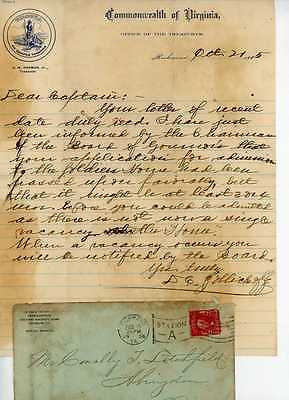 Commonwealth of Virginia,
OFFICE OF THE TREASURER,
Richmond Oct. 21, 05
Dear Captain:-
Your letter of recent
date duly recd. I have just
been informed by the Chairman
of the Board of Governors that
your application for admission
to the Soldiers Home had been
passed upon favorably, but
that it might be not
before you could be admitted
as there is not now a single
vacancy in the Home.
When a vacancy occurs you
will be notified by the Board.
Yrs truly
D. C.
STATION
A
VA.
Mr Connally T. Litchfield,
Abingdon